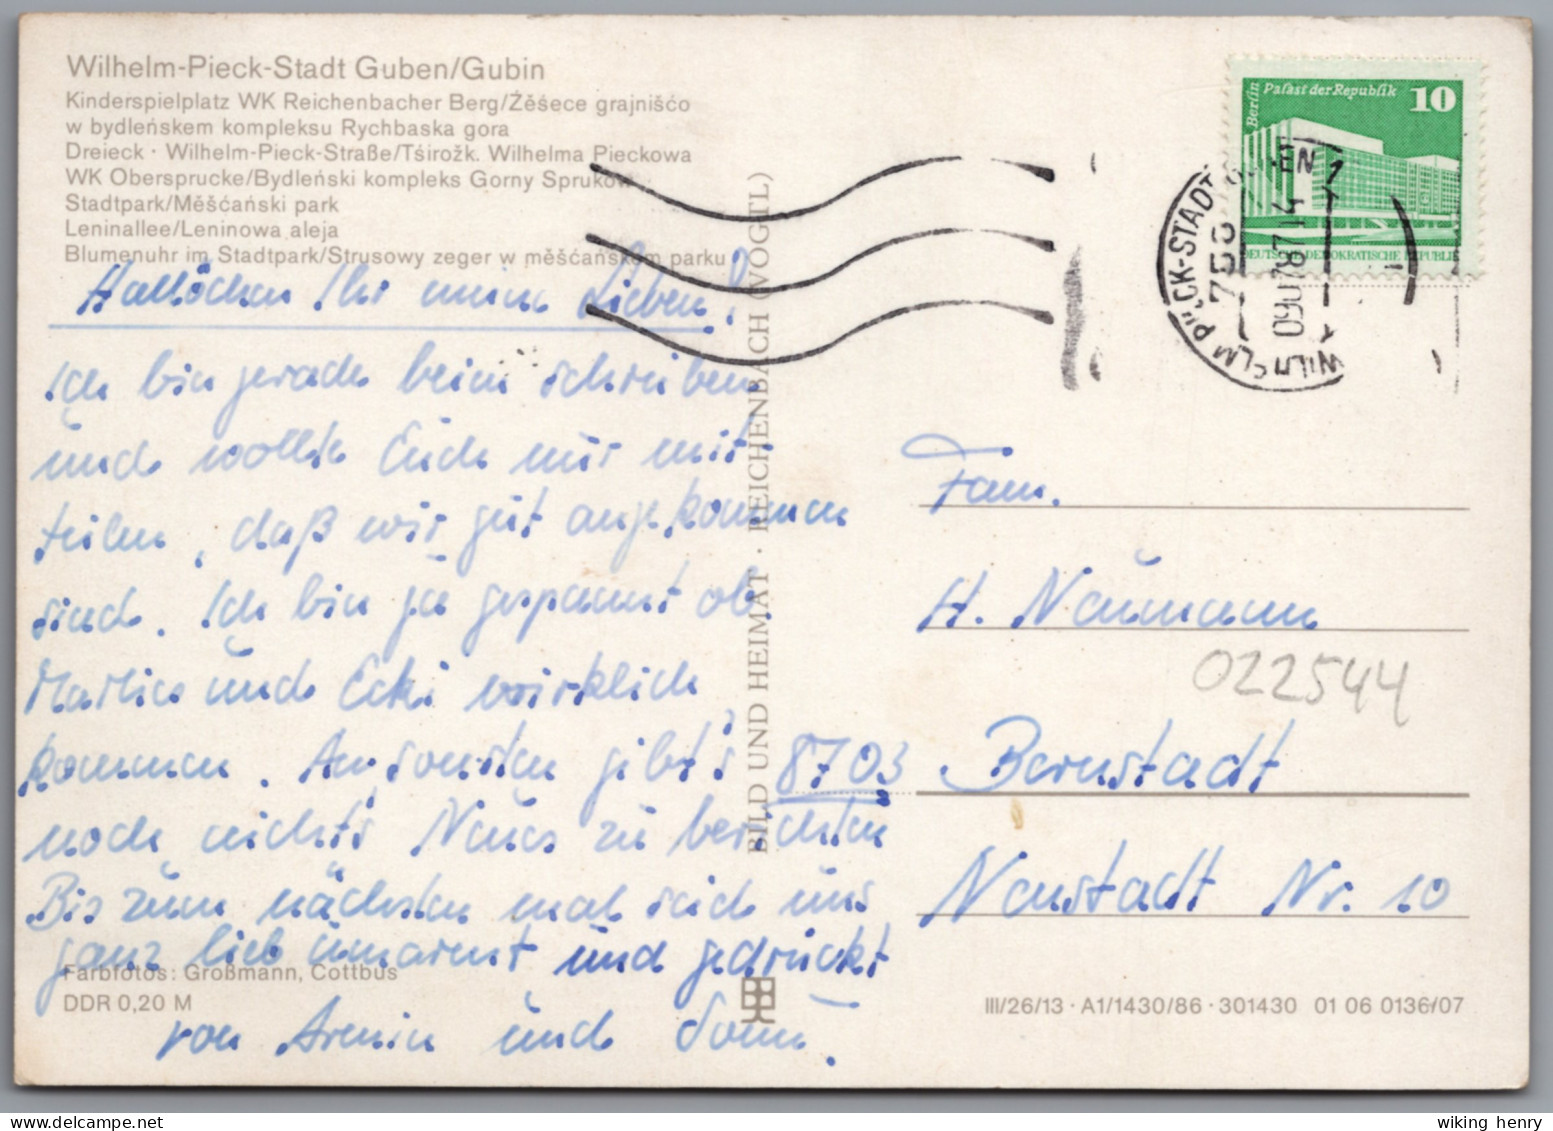 Wilhelm-Pieck-Stadt Guben/Gubin
Kinderspielplatz WK Reichenbacher Berg/Źěśece grajnišćo
w bydleńskem kompleksu Rychbaska gora
Dreieck · Wilhelm-Pieck-Straße/Tśirožk. Wilhelma Pieckowa
WK Obersprucke/Bydleński kompleks Gorny Sprukow
Stadtpark/Měšćański park
Leninallee/Leninowa aleja
Blumenuhr im Stadtpark/Strusowy zeger w měšćańskem parku
Hallöchen Ihr meine Lieben!
Ich bin gerade beim schreiben
und wollte Euch nur mit-
teilen, daß wir gut angekommen
sind. Ich bin ja gespannt ob
Marlies und Ecki wirklich
kommen. Ansonsten gibt's
noch nichts Neues zu berichten
Bis zum nächsten mal seid uns
ganz lieb umarmt und gedrückt
von Armin und
Farbfotos: Großmann, Cottbus
DDR 0,20 M
BILD UND HEIMAT · REICHENBACH (VOGTL)
Berlin Palast der Republik 10
DEUTSCHE DEMOKRATISCHE REPUBLIK
WILHELM-PIECK-STADT GUBEN 1
Fam.
H. Naumann
022544
8703 Bernstadt
Neustadt Nr. 10
III/26/13 · A1/1430/86 · 301430 01 06 0136/07
wiking henry